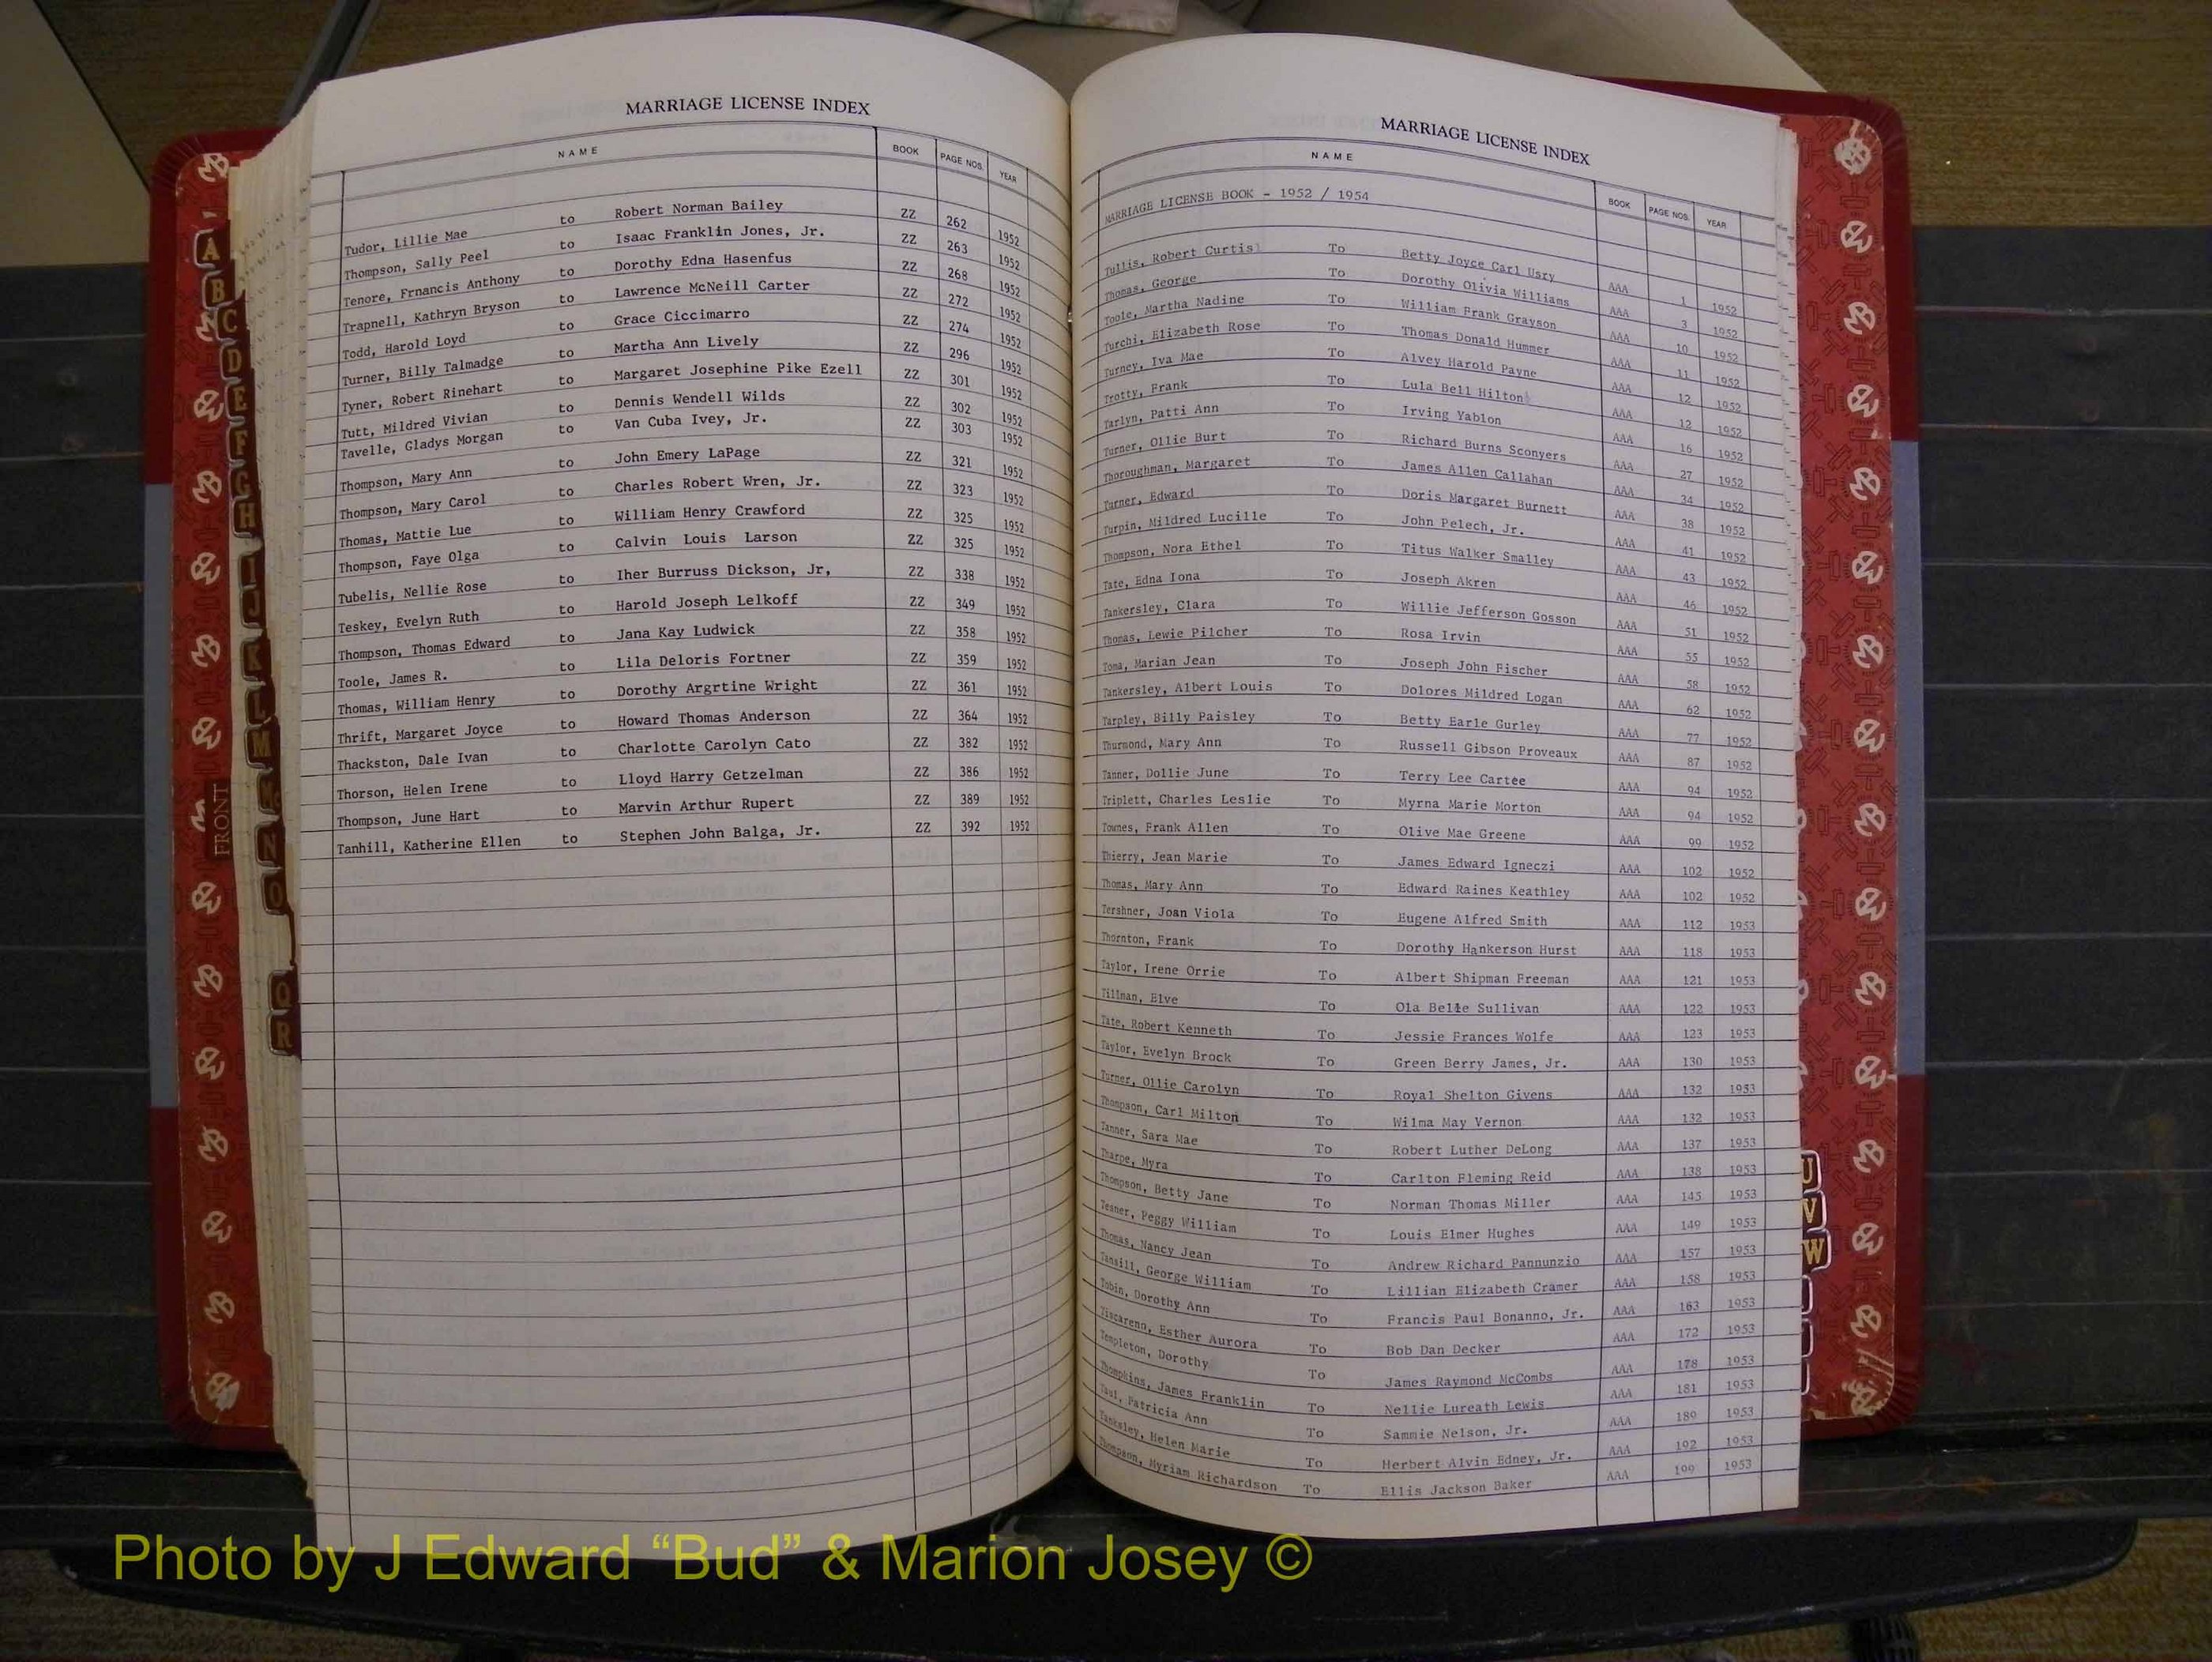 MARRIAGE LICENSE INDEX
NAME BOOK PAGE NOS. YEAR
Tudor, Lillie Mae to Robert Norman Bailey ZZ 262 1952
Thompson, Sally Peel to Isaac Franklin Jones, Jr. ZZ 263 1952
Tenore, Frnancis Anthony to Dorothy Edna Hasenfus ZZ 268 1952
Trapnell, Kathryn Bryson to Lawrence McNeill Carter ZZ 272 1952
Todd, Harold Loyd to Grace Ciccimarro ZZ 274 1952
Turner, Billy Talmadge to Martha Ann Lively ZZ 296 1952
Tyner, Robert Rinehart to Margaret Josephine Pike Ezell ZZ 301 1952
Tutt, Mildred Vivian to Dennis Wendell Wilds ZZ 302 1952
Tavelle, Gladys Morgan to Van Cuba Ivey, Jr. ZZ 303 1952
Thompson, Mary Ann to John Emery LaPage ZZ 321 1952
Thompson, Mary Carol to Charles Robert Wren, Jr. ZZ 323 1952
Thomas, Mattie Lue to William Henry Crawford ZZ 325 1952
Thompson, Faye Olga to Calvin Louis Larson ZZ 325 1952
Tubelis, Nellie Rose to Iher Burruss Dickson, Jr, ZZ 338 1952
Teskey, Evelyn Ruth to Harold Joseph Lelkoff ZZ 349 1952
Thompson, Thomas Edward to Jana Kay Ludwick ZZ 358 1952
Toole, James R. to Lila Deloris Fortner ZZ 359 1952
Thomas, William Henry to Dorothy Argrtine Wright ZZ 361 1952
Thrift, Margaret Joyce to Howard Thomas Anderson ZZ 364 1952
Thackston, Dale Ivan to Charlotte Carolyn Cato ZZ 382 1952
Thorson, Helen Irene to Lloyd Harry Getzelman ZZ 386 1952
Thompson, June Hart to Marvin Arthur Rupert ZZ 389 1952
Tanhill, Katherine Ellen to Stephen John Balga, Jr. ZZ 392 1952
MARRIAGE LICENSE INDEX
NAME BOOK PAGE NOS. YEAR
MARRIAGE LICENSE BOOK - 1952 / 1954
Tullis, Robert Curtis To Betty Joyce Carl Usry AAA 1 1952
Thomas, George To Dorothy Olivia Williams AAA 3 1952
Toole, Martha Nadine To William Frank Grayson AAA 10 1952
Turchi, Elizabeth Rose To Thomas Donald Hummer AAA 11 1952
Turney, Iva Mae To Alvey Harold Payne AAA 12 1952
Trotty, Frank To Lula Bell Hilton AAA 12 1952
Tarlyn, Patti Ann To Irving Yablon AAA 16 1952
Turner, Ollie Burt To Richard Burns Sconyers AAA 27 1952
Thoroughman, Margaret To James Allen Callahan AAA 34 1952
Turner, Edward To Doris Margaret Burnett AAA 38 1952
Turpin, Mildred Lucille To John Pelech, Jr. AAA 41 1952
Thompson, Nora Ethel To Titus Walker Smalley AAA 43 1952
Tate, Edna Iona To Joseph Akren AAA 46 1952
Tankersley, Clara To Willie Jefferson Gosson AAA 51 1952
Thomas, Lewie Pilcher To Rosa Irvin AAA 55 1952
Toma, Marian Jean To Joseph John Fischer AAA 58 1952
Tankersley, Albert Louis To Dolores Mildred Logan AAA 62 1952
Tarpley, Billy Paisley To Betty Earle Gurley AAA 77 1952
Thurmond, Mary Ann To Russell Gibson Proveaux AAA 87 1952
Tanner, Dollie June To Terry Lee Cartee AAA 94 1952
Triplett, Charles Leslie To Myrna Marie Morton AAA 94 1952
Townes, Frank Allen To Olive Mae Greene AAA 99 1952
Thierry, Jean Marie To James Edward Igneczi AAA 102 1952
Thomas, Mary Ann To Edward Raines Keathley AAA 102 1952
Tershner, Joan Viola To Eugene Alfred Smith AAA 112 1953
Thornton, Frank To Dorothy Hankerson Hurst AAA 118 1953
Taylor, Irene Orrie To Albert Shipman Freeman AAA 121 1953
Tillman, Elve To Ola Belle Sullivan AAA 122 1953
Tate, Robert Kenneth To Jessie Frances Wolfe AAA 123 1953
Taylor, Evelyn Brock To Green Berry James, Jr. AAA 130 1953
Turner, Ollie Carolyn To Royal Shelton Givens AAA 132 1953
Thompson, Carl Milton To Wilma May Vernon AAA 132 1953
Tanner, Sara Mae To Robert Luther DeLong AAA 137 1953
Tharpe, Myra To Carlton Fleming Reid AAA 138 1953
Thompson, Betty Jane To Norman Thomas Miller AAA 145 1953
Tesner, Peggy William To Louis Elmer Hughes AAA 149 1953
Thomas, Nancy Jean To Andrew Richard Pannunzio AAA 157 1953
Tansill, George William To Lillian Elizabeth Cramer AAA 158 1953
Tobin, Dorothy Ann To Francis Paul Bonanno, Jr. AAA 163 1953
Tiscareno, Esther Aurora To Bob Dan Decker AAA 172 1953
Templeton, Dorothy To James Raymond McCombs AAA 178 1953
Thompkins, James Franklin To Nellie Lureath Lewis AAA 181 1953
Taul, Patricia Ann To Sammie Nelson, Jr. AAA 189 1953
Tanksley, Helen Marie To Herbert Alvin Edney, Jr. AAA 192 1953
Thompson, Myriam Richardson To Ellis Jackson Baker AAA 199 1953
A
B
C
D
E
F
G
H
I
J
K
L
M
N
O
Q
R
FRONT
U
V
W
Photo by J Edward “Bud” & Marion Josey ©